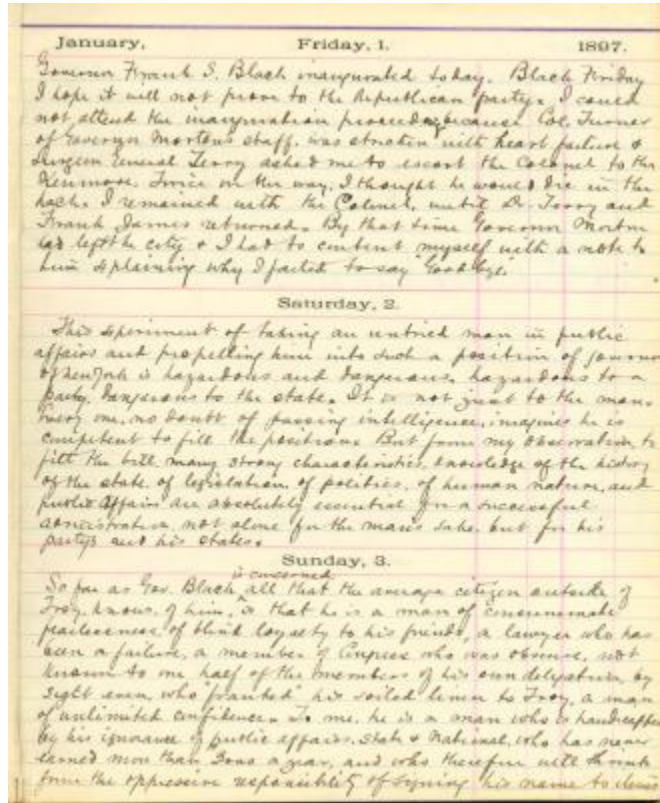 January, Friday, 1. 1897.
Governor Frank S. Black inaugurated today. Black Friday
I hope it will not prove to the Republican party. I could
not attend the inauguration proceedings because Col. Turner
of Governor Morton's staff, was stricken with heart failure &
Surgeon General Terry asked me to escort the Colonel to the
Kenmore. Twice on the way, I thought he would die in the
hack. I remained with the Colonel, until Dr. Terry and
Frank James returned. By that time Governor Morton
had left the city & I had to content myself with a note to
him explaining why I failed to say "Good bye".
Saturday, 2.
This experiment of taking an untried man in public
affairs and propelling him into such a position of governor
of New York is hazardous and dangerous, hazardous to a
party, dangerous to the state. It is not just to the man.
Every one, no doubt of passing intelligence, imagines he is
competent to fill the position. But from my observation, to
fill the bill, many strong characteristics, knowledge of the history
of the state, of legislation, of politics, of human nature, and
public affairs are absolutely essential for a successful
administration, not alone for the man's sake, but for his
party's and his state's.
Sunday, 3.
So far as Gov. Black is concerned all that the average citizen outside of
Troy, knows of him, is that he is a man of consummate
fearlessness, of blind loyalty to his friends, a lawyer who has
been a failure, a member of Congress who was obscure, not
known to one half of the members of his own delegation, by
sight even, who "franked" his soiled linen to Troy, a man
of unlimited confidence. To me, he is a man who is handicapped
by his ignorance of public affairs, State & National, who has never
earned more than a year, and who therefore will shrink
from the oppressive responsibility of signing his name to